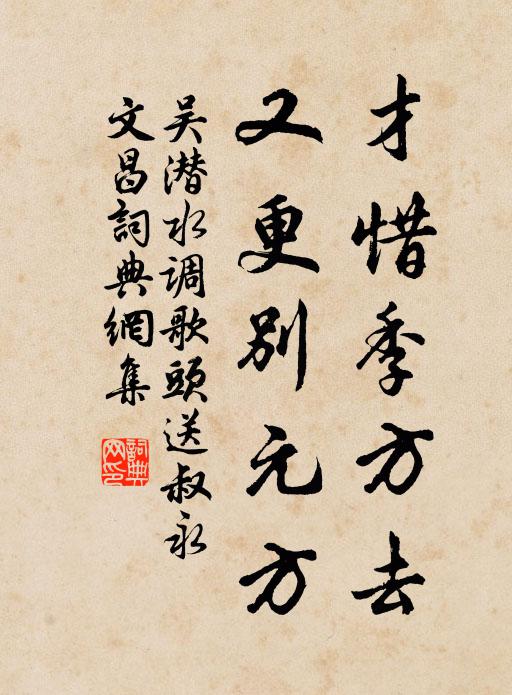 才惜季方去
又更別元方
吴潜水调歌頭送叔永
文昌詞典網集
詞典網印